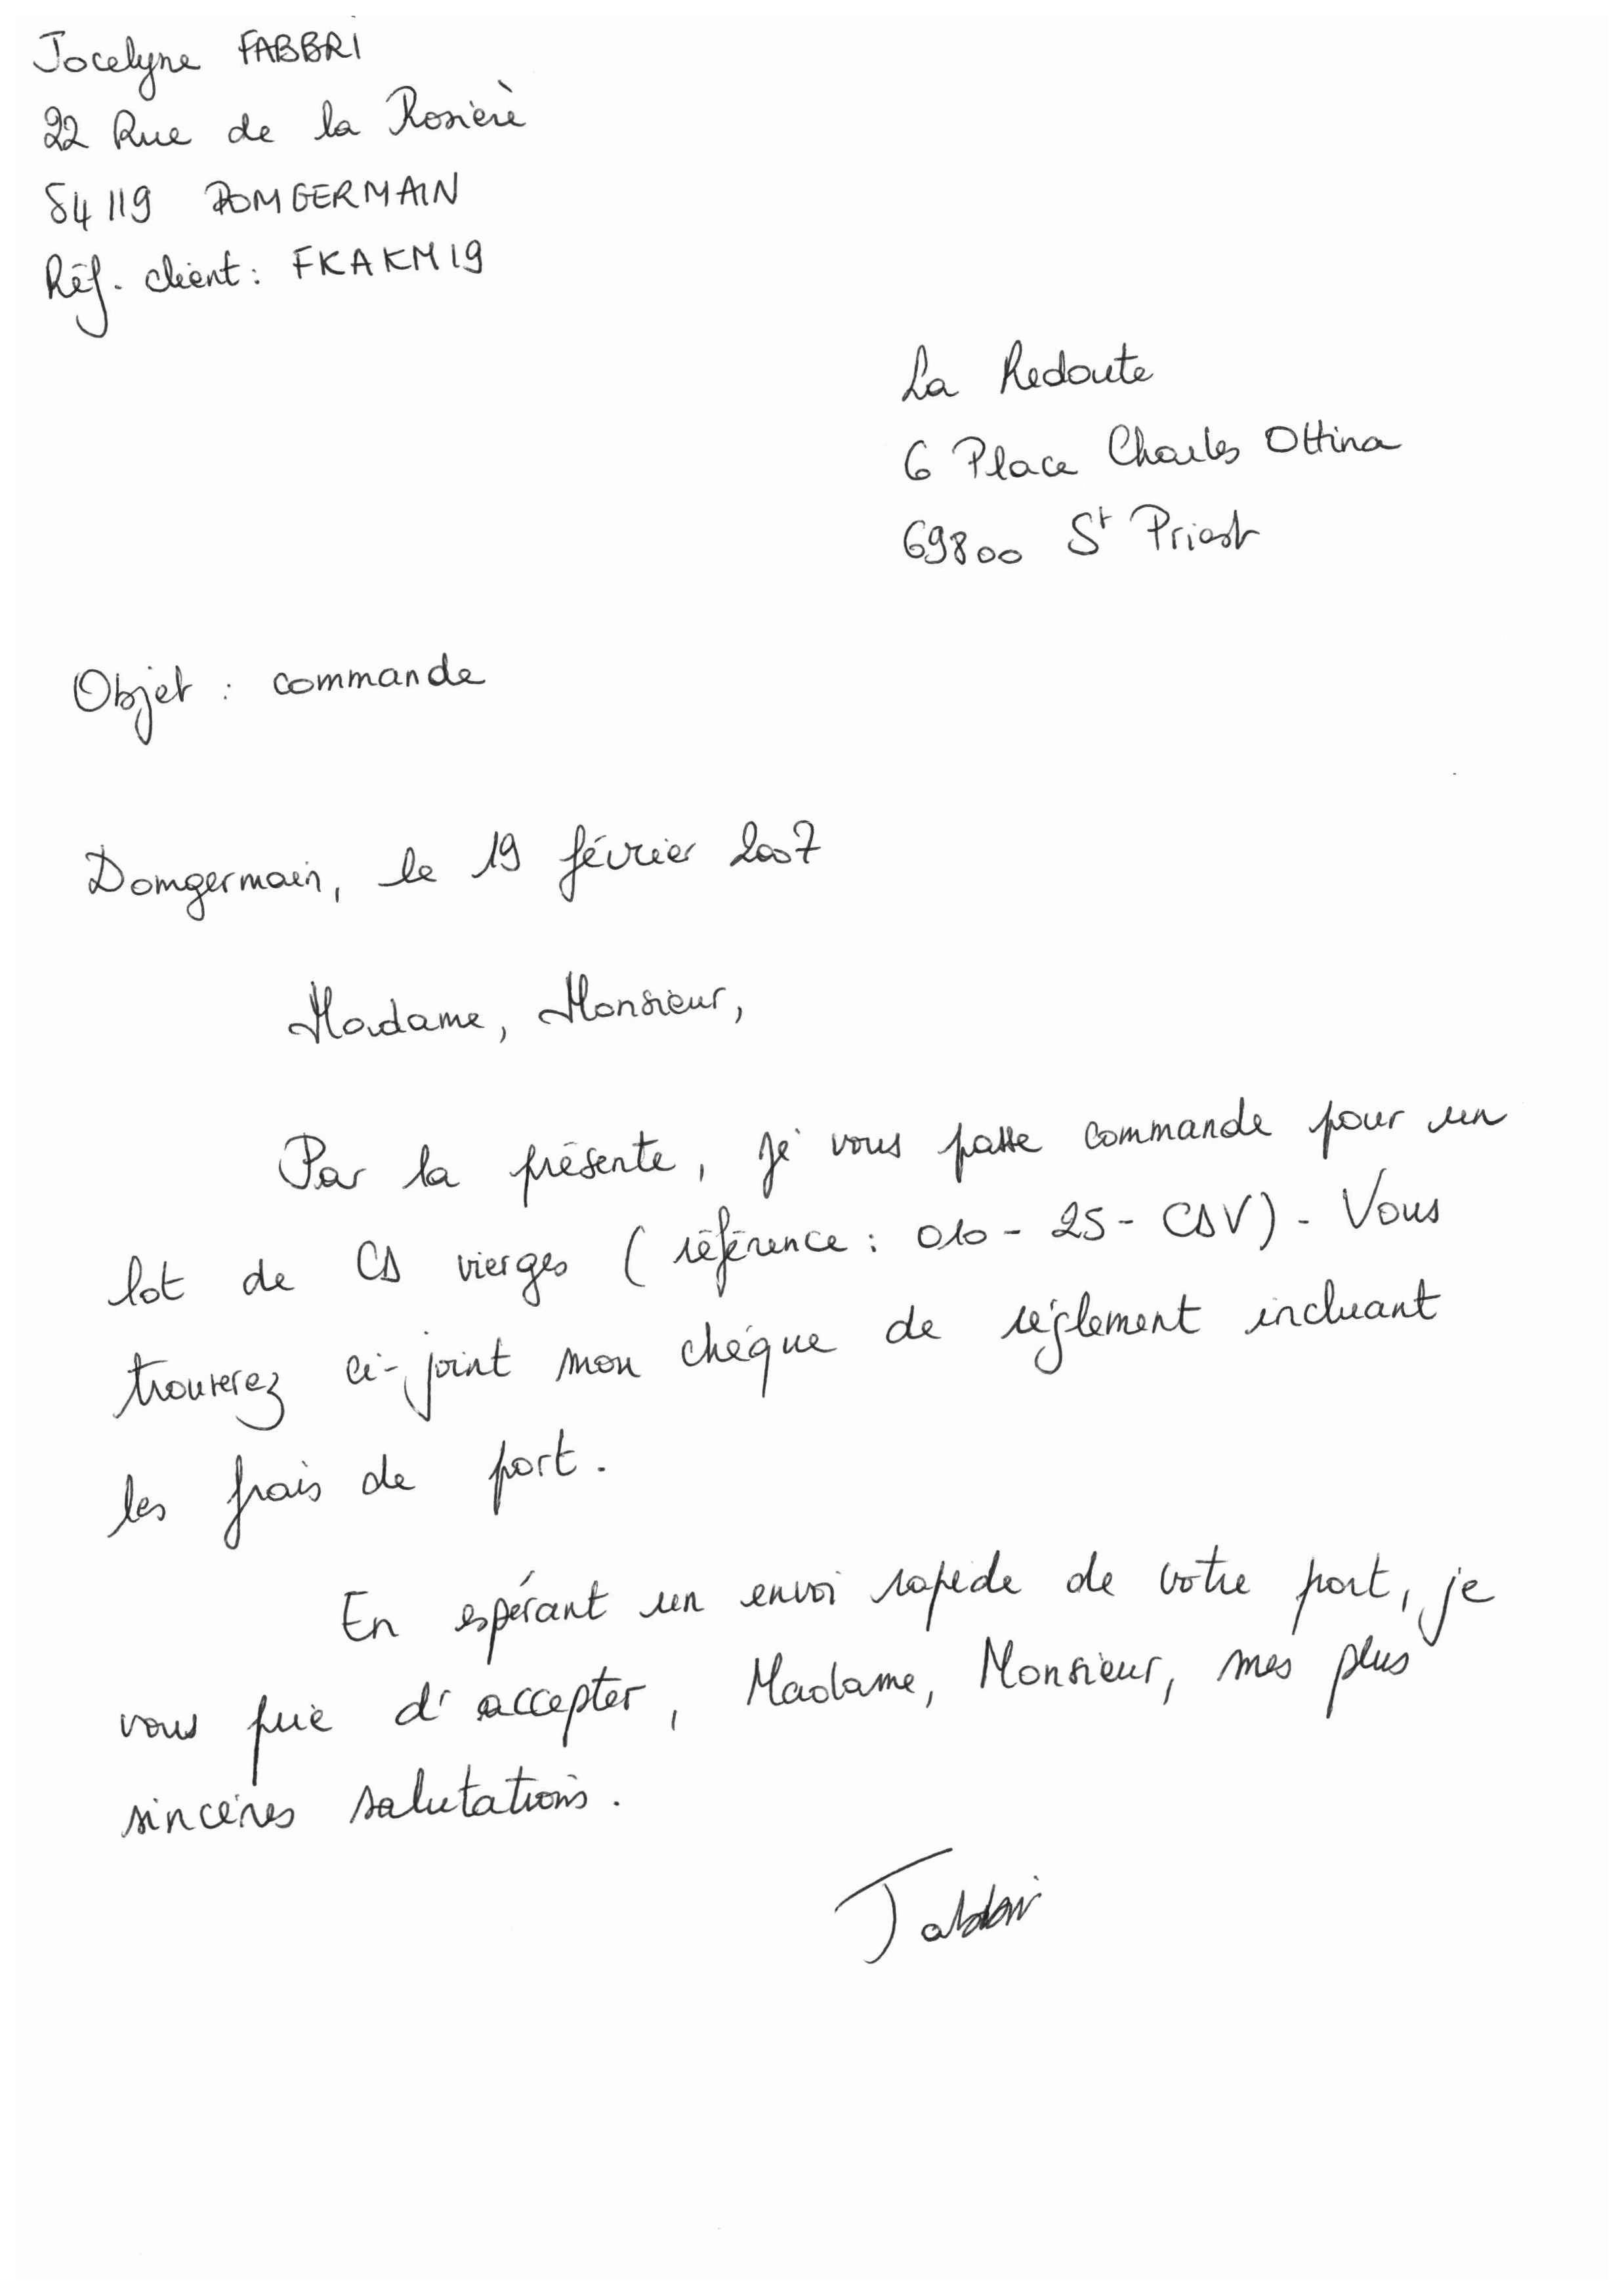 Jocelyne FABBRI
22 Rue de la Rosière
54119 DOMGERMAIN
Réf. client : FKAKM19
La Redoute
6 Place Charles Ottina
69800 St Priest
Objet : commande
Domgermain, le 19 février 2007
Madame, Monsieur,
Par la présente, je vous passe commande pour un
lot de CD vierges (référence : 010-25-CDV). Vous
trouverez ci-joint mon chèque de règlement incluant
les frais de port.
En espérant un envoi rapide de votre part, je
vous prie d'accepter, Madame, Monsieur, mes plus
sincères salutations.
Fabbri